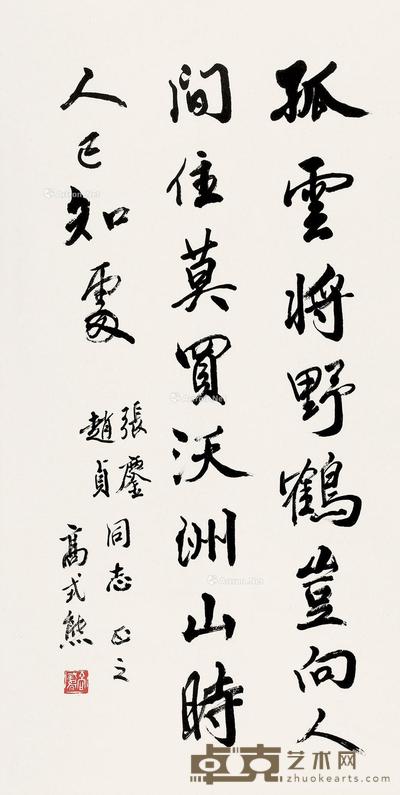 孤雲将野鶴豈向人
間住莫買沃洲山時
人已知處
張
趙貞
同志正之
高式熊
卓克艺术网
zhuokearts.com